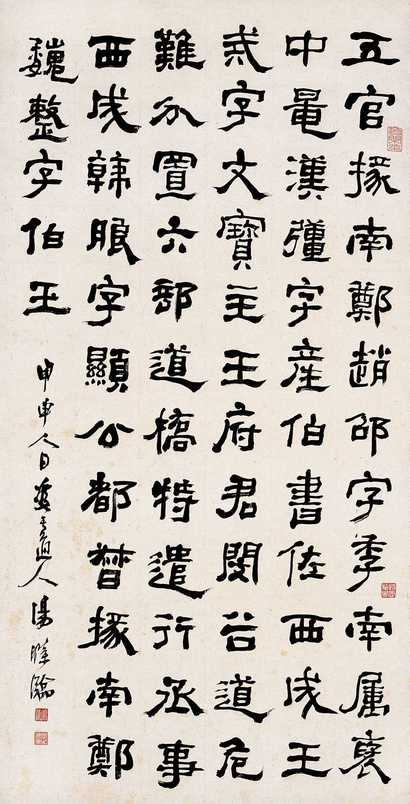 五官掾南鄭趙邵字季南屬褒
中鼂漢彊字產伯書佐西成王
戒字文寶主王府君閔谷道危
難分置六部道橋特遣行丞事
西成韓朖字顯公都督掾南鄭
魏整字伯王
甲申人日雙于道人湯滌臨